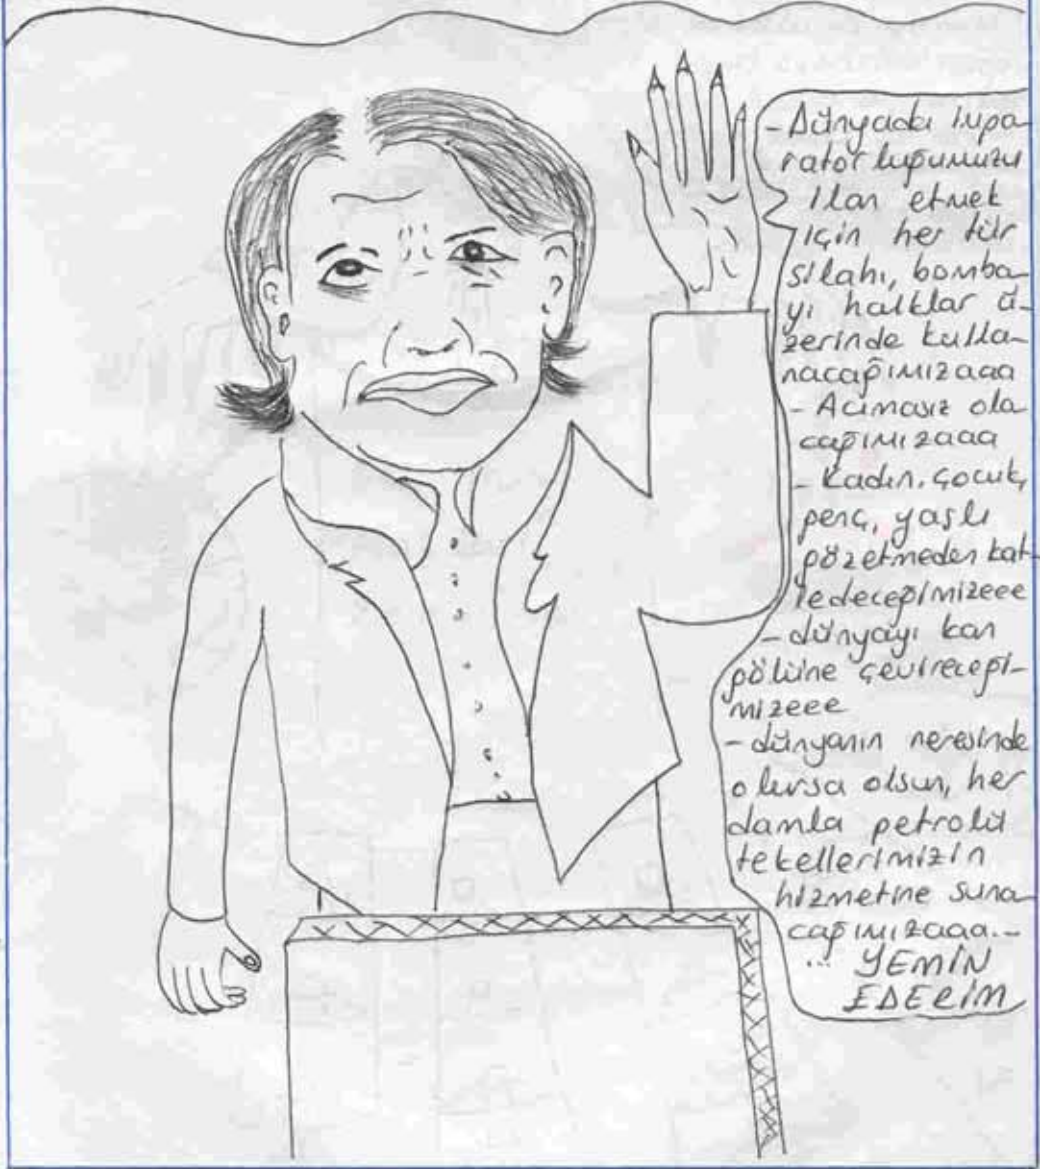 - Dünyada impa
ratorluğumuzu
ilan etmek
için her tür
silahı, bomba-
yı halklar ü-
zerinde kulla-
nacağımızaaa
- Acımasız ola
cağımızaaa
- Kadın, çocuk,
genç, yaşlı
gözetmeden kat-
ledeceğimizeee
- dünyayı kan
gölüne çevireceği-
mizeee
- dünyanın neresinde
olursa olsun, her
damla petrolü
tekellerimizin
hizmetine suna
cağımızaaa...
... YEMİN
EDERİM